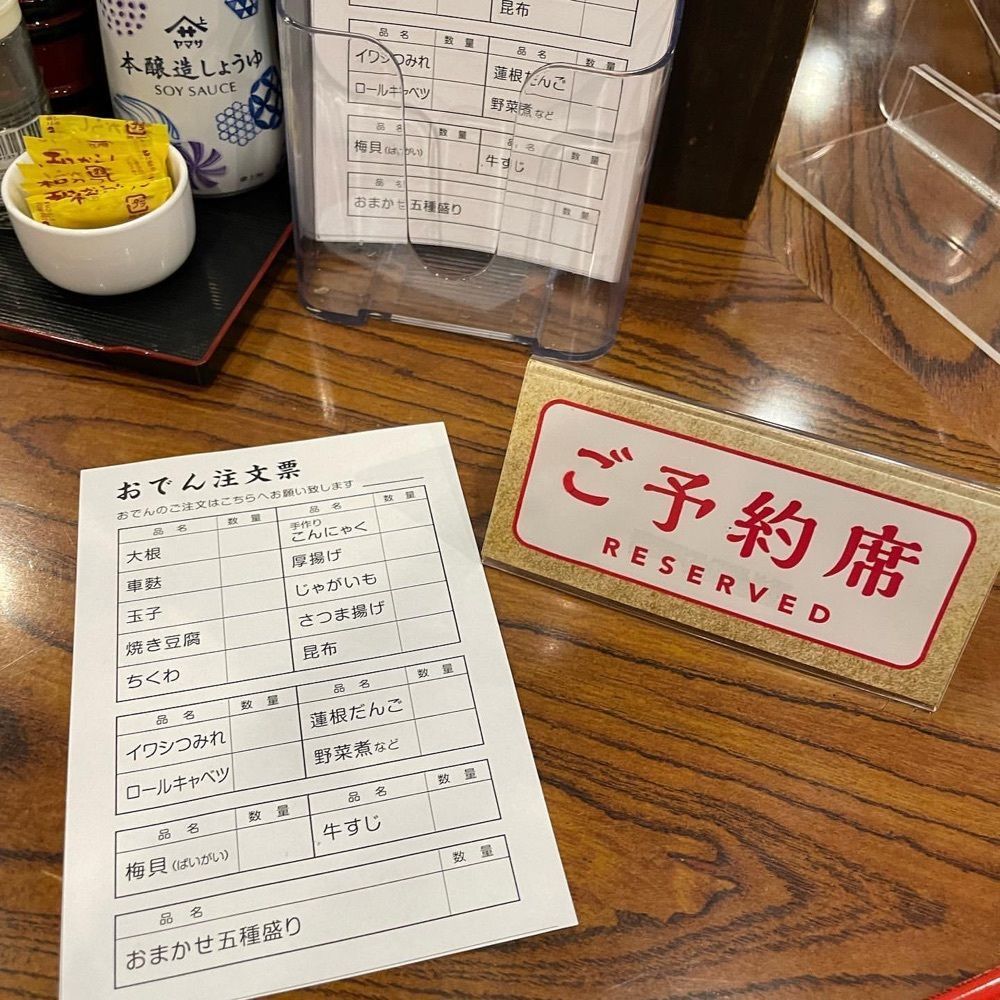 上
ヤマサ
本醸造しょうゆ
SOY SAUCE
昆布
品名 数量 品名 数量
イワシつみれ 蓮根だんご
ロールキャベツ 野菜煮など
品名 数量 品名 数量
梅貝(ばいがい) 牛すじ
品名 数量
おまかせ五種盛り
おでん注文票
おでんのご注文はこちらへお願い致します
品名 数量 品名 数量
大根 手作りこんにゃく
車麩 厚揚げ
玉子 じゃがいも
焼き豆腐 さつま揚げ
ちくわ 昆布
品名 数量 品名 数量
イワシつみれ 蓮根だんご
ロールキャベツ 野菜煮など
品名 数量 品名 数量
梅貝(ばいがい) 牛すじ
品名 数量
おまかせ五種盛り
ご予約席
RESERVED